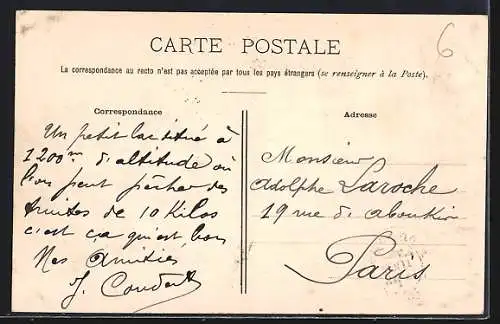 6
CARTE POSTALE
La correspondance au recto n'est pas acceptée par tous les pays étrangers (se renseigner à la Poste).
Correspondance
Un petit lac situé à
1200m d'altitude où
l'on peut pêcher des
truites de 10 Kilos
c'est ça qu'est bon
Mes Amitiés
J. Coudert
Adresse
Monsieur
Adolphe Laroche
19 rue d'aboukir
Paris